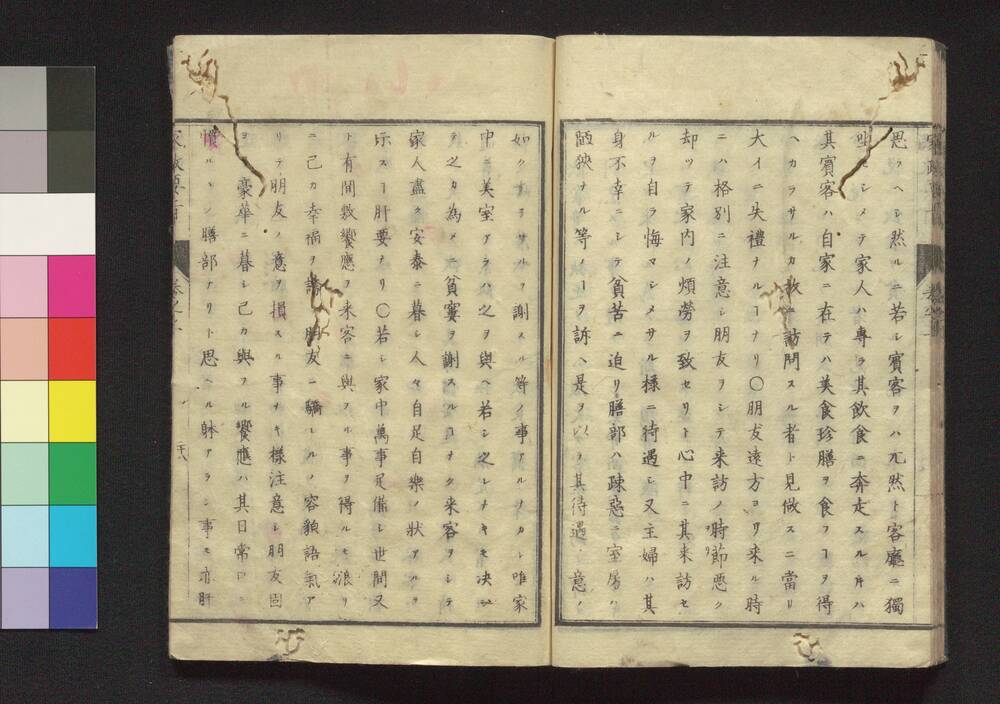 思フヘシ然ルニ若シ賓客ヲハ兀然ト客廳ニ獨
坐セシメテ家人ハ專ラ其飲食ニ奔走スル片ハ
其賓客ハ自家ニ在テハ美食珍膳ヲ食フヿヲ得
ヘカラサルカ故ニ訪問スル者ト見做スニ當リ
大イニ失禮ナルヿナリ〇朋友遠方ヨリ来ル時
ニハ格別ニ注意シ朋友ヲシテ来訪ノ時節悪ク
却ツテ家内ノ煩勞ヲ致セリト心中ニ其来訪セ
ルヲ自ラ悔マシメサル様ニ待遇シ又主婦ハ其
身不幸ニシテ貧苦ニ迫リ膳部ハ疎惡ニ室房ハ
陋狹ナル等ノヿヲ訴ヘ是ヲ以テ其待遇意ノ
如クナラサルヲ謝スル等ノ事アルナカレ唯家
中ニ美室アラハ之ヲ與ヘ若シ之レナキモ决シ
テ之カ為メニ貧窶ヲ謝スルヿナク来客ヲシテ
家人盡ク安泰ニ暮シ人々自足自樂ノ狀アルヲ
示スヿ肝要ナリ〇若シ家中萬事足備シ世間又
ト有間敷饗應ヲ来客ニ與フル事ヲ得ルモ浪リ
ニ己カ幸福ヲ誇リ朋友ニ驕レルノ容貌語氣ア
リテ朋友ノ意ヲ損スル事ナキ様注意シ朋友固
ヨリ豪華ニ暮シ己カ與フル饗應ハ其日常口ニ
慣ルヽノ膳部ナリト思ヘル躰アラシ事モ亦肝